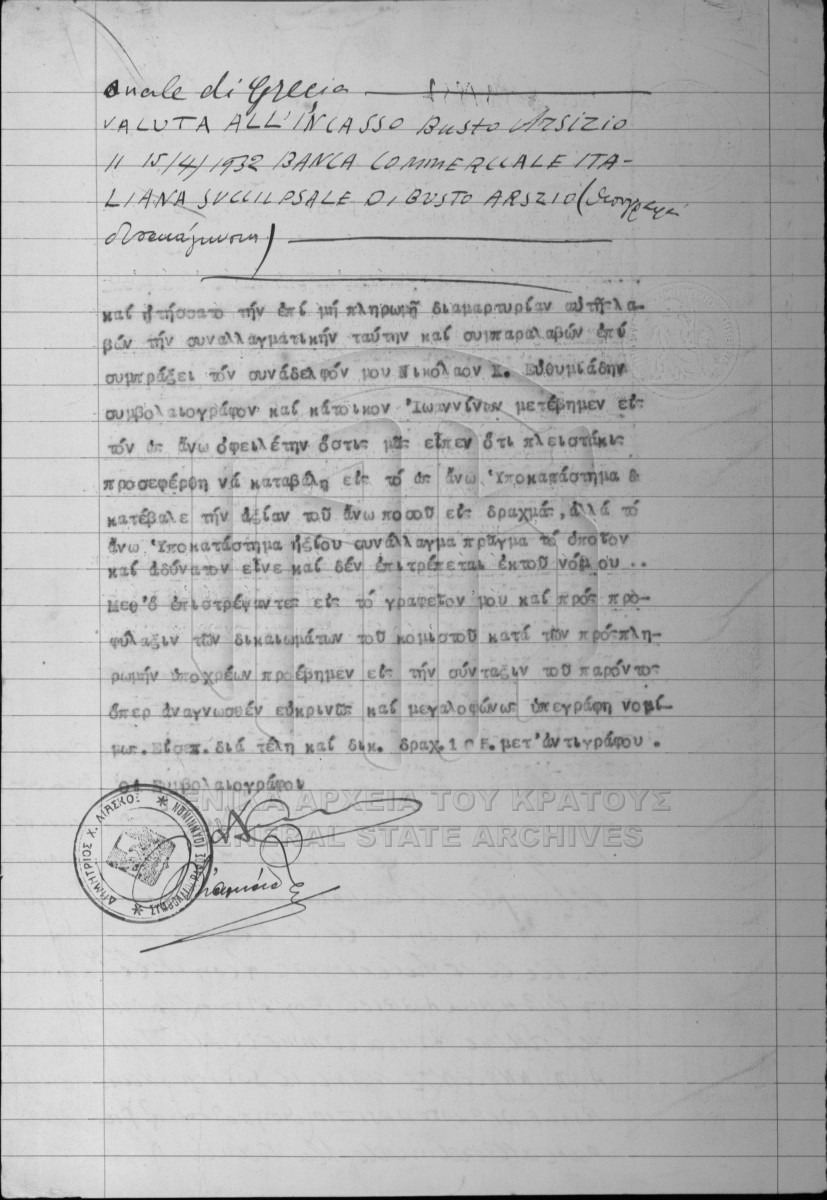 onale di Grecia
VALUTA ALL'INCASSO Busto Arsizio
11 15/4/1932 BANCA COMMERCIALE ITA-
LIANA SUCCURSALE DI BUSTO ARSZIO (
καί ᾐτήσσατο τήν ἐπί μή πληρωμῇ διαμαρτυρίαν αὐτῆς λα-
βών τήν συναλλαγματικήν ταύτην καί συμπαραλαβών ἐπί
συμπράξει τόν συνάδελφόν μου Νικόλαον Χ. Εὐθυμιάδην
συμβολαιογράφον καί κάτοικον Ἰωαννίνων μετέβημεν εἰς
τόν ὡς ἄνω ὀφειλέτην ὅστις μᾶς εἶπεν ὅτι πλειστάκις
προσεφέρθη νά καταβάλῃ εἰς τό ὡς ἄνω Ὑποκατάστημα &
κατέβαλε τήν ἀξίαν τοῦ ἄνω ποσοῦ εἰς δραχμάς, ἀλλά τό
ἄνω Ὑποκατάστημα ἠξίου συνάλλαγμα πρᾶγμα τό ὁποῖον
καί ἀδύνατον εἶνε καί δέν ἐπιτρέπεται ἐκ τοῦ νόμου ..
Μεθ'ὅ ἐπιστρέψαντες εἰς τό γραφεῖον μου καί πρός προ-
φύλαξιν τῶν δικαιωμάτων τοῦ κομιστοῦ κατά τῶν πρός πλη-
ρωμήν ὑποχρέων προέβημεν εἰς τήν σύνταξιν τοῦ παρόντος
ὅπερ ἀναγνωσθέν εὐκρινῶς καί μεγαλοφώνως ὑπεγράφη νομί-
μως. Εἰσεπ. διά τέλη καί δικ. δραχ. 105. μετ' ἀντιγράφου.
Οἱ Συμβολαιογράφοι
ΓΕΝΙΚΑ ΑΡΧΕΙΑ ΤΟΥ ΚΡΑΤΟΥΣ
GENERAL STATE ARCHIVES
ΔΗΜΗΤΡΙΟΣ Χ. ΛΙΑΣΚΟΣ